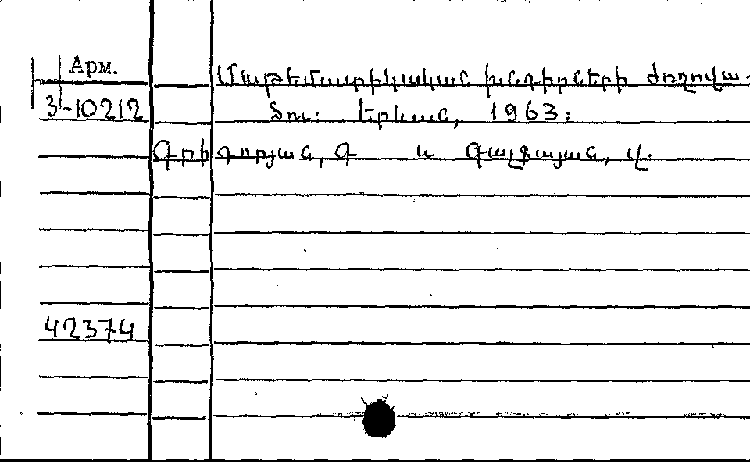 Арм.
Մաթեմատիկական խնդիրների ժողովա-
3-10212
ծու: Երևան, 1963:
Գրիգորյան, Գ և Գալջայան, Վ.
42374